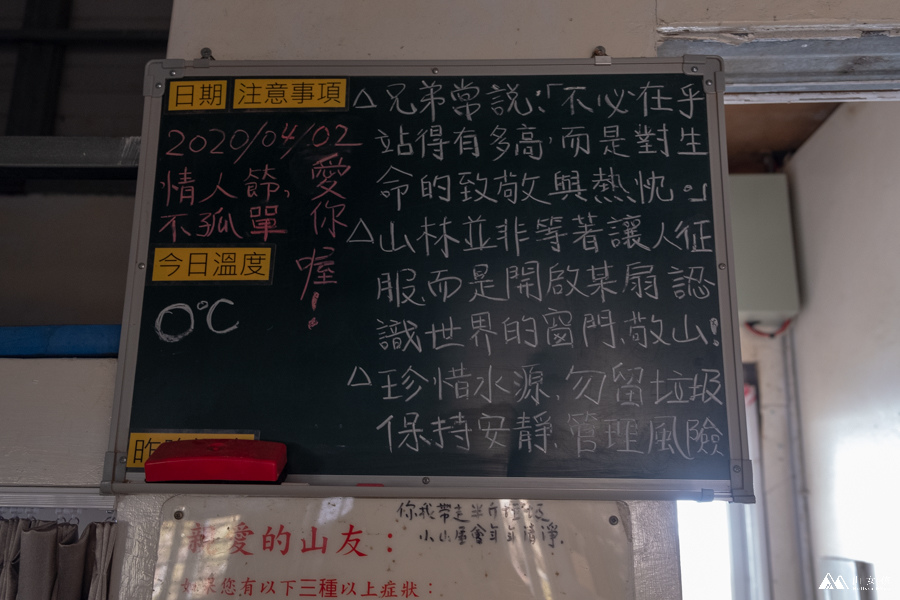 日期
注意事項
2020/04/02
情人節,
不孤單
愛你喔!
今日溫度
0℃
△兄弟常說:「不必在乎
站得有多高,而是對生
命的致敬與熱忱。」
△山林並非等著讓人征
服,而是開啟某扇認
識世界的窗門,敬山!
△珍惜水源,勿留垃圾
保持安靜,管理風險
昨
你我帶走半斤垃圾
親愛的山友:
如果您有以下三種以上症狀: